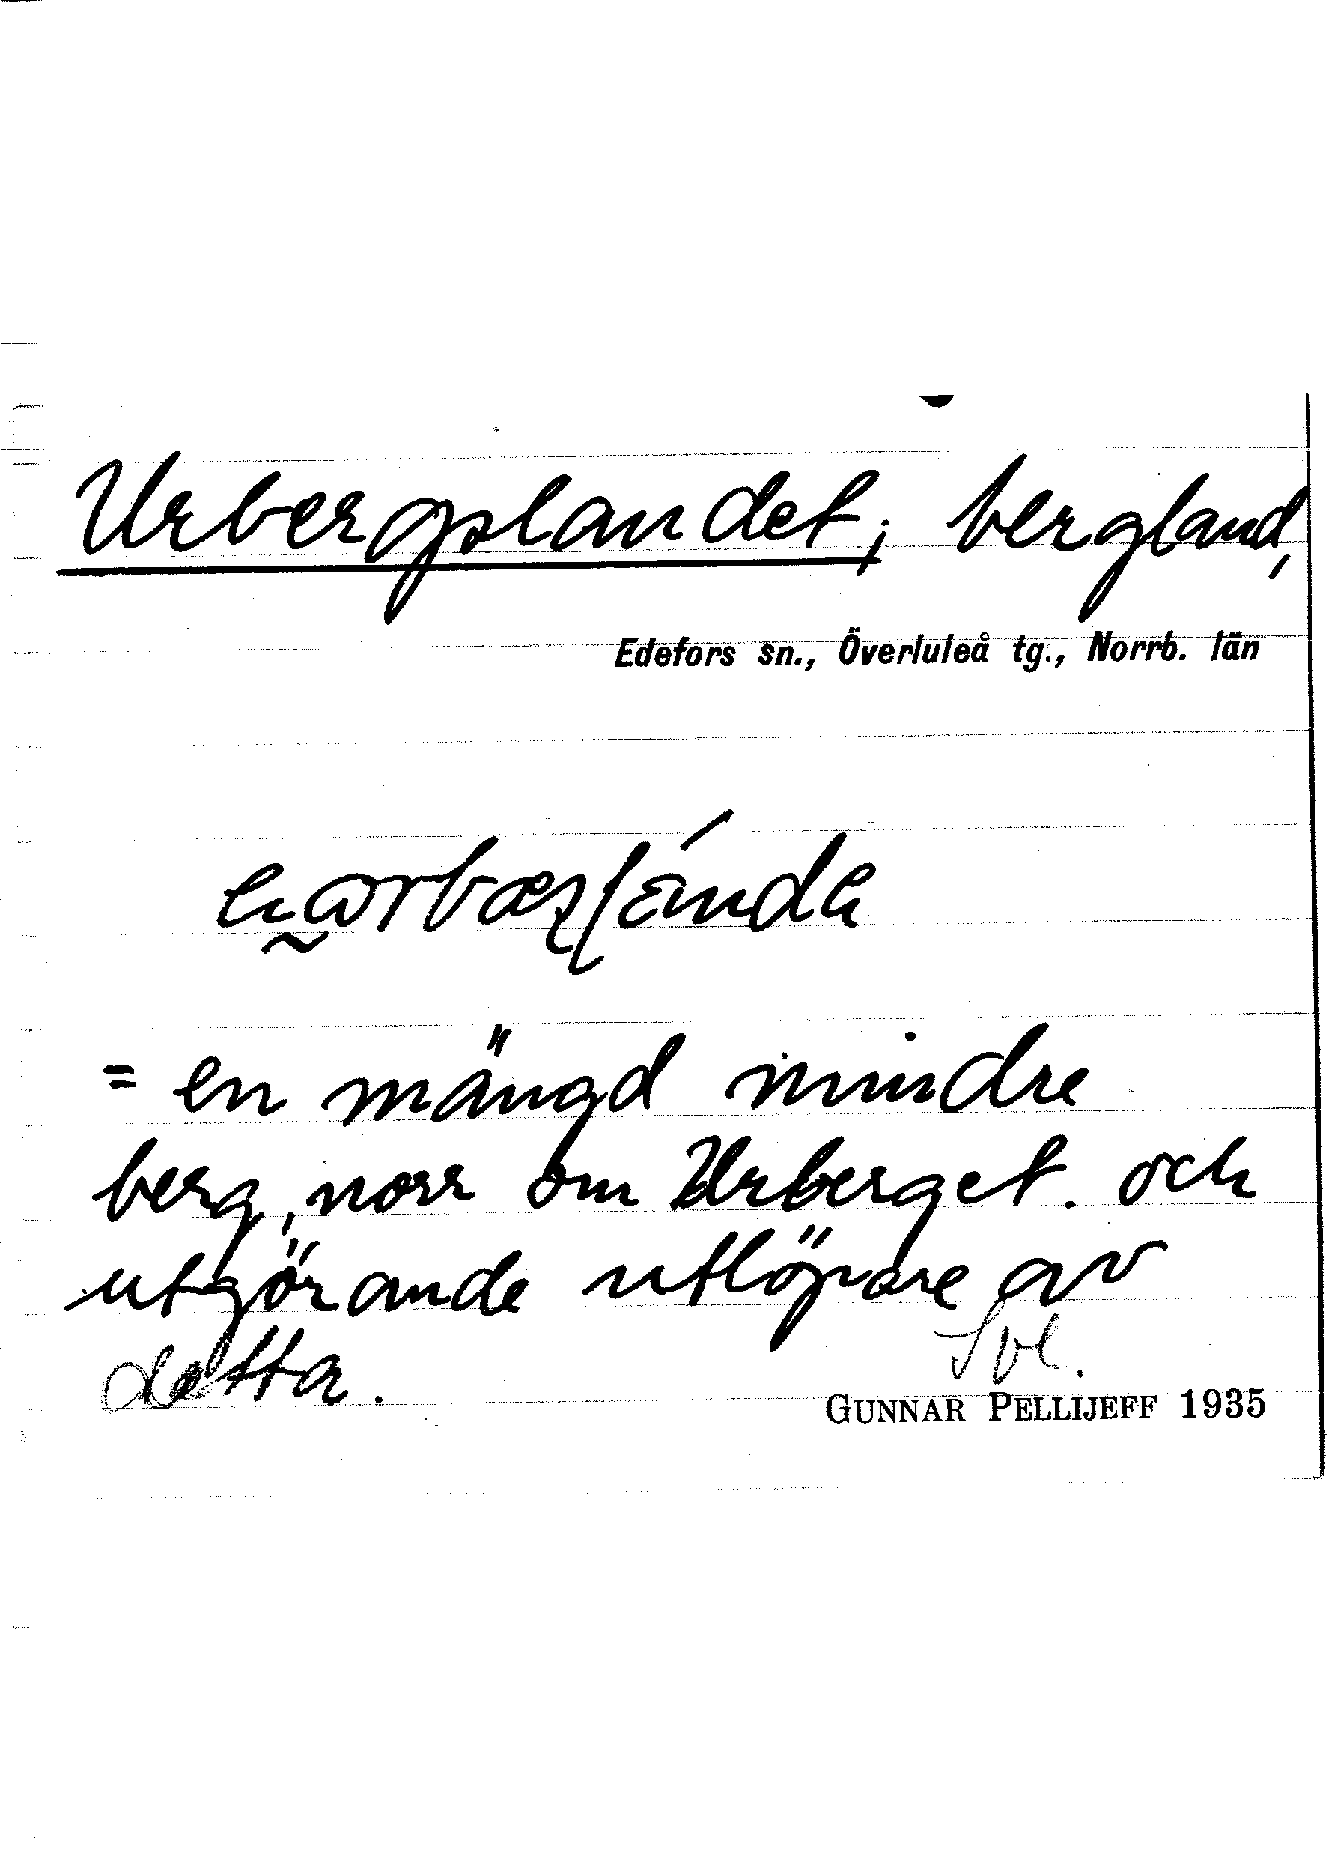 Urbergslandet; bergland,
Edefors sn., Överluleå tg., Norrb. län
= en mängd mindre
berg, norr om Urberget. och
utgörande utlöpare av
detta.
GUNNAR PELLIJEFF 1935